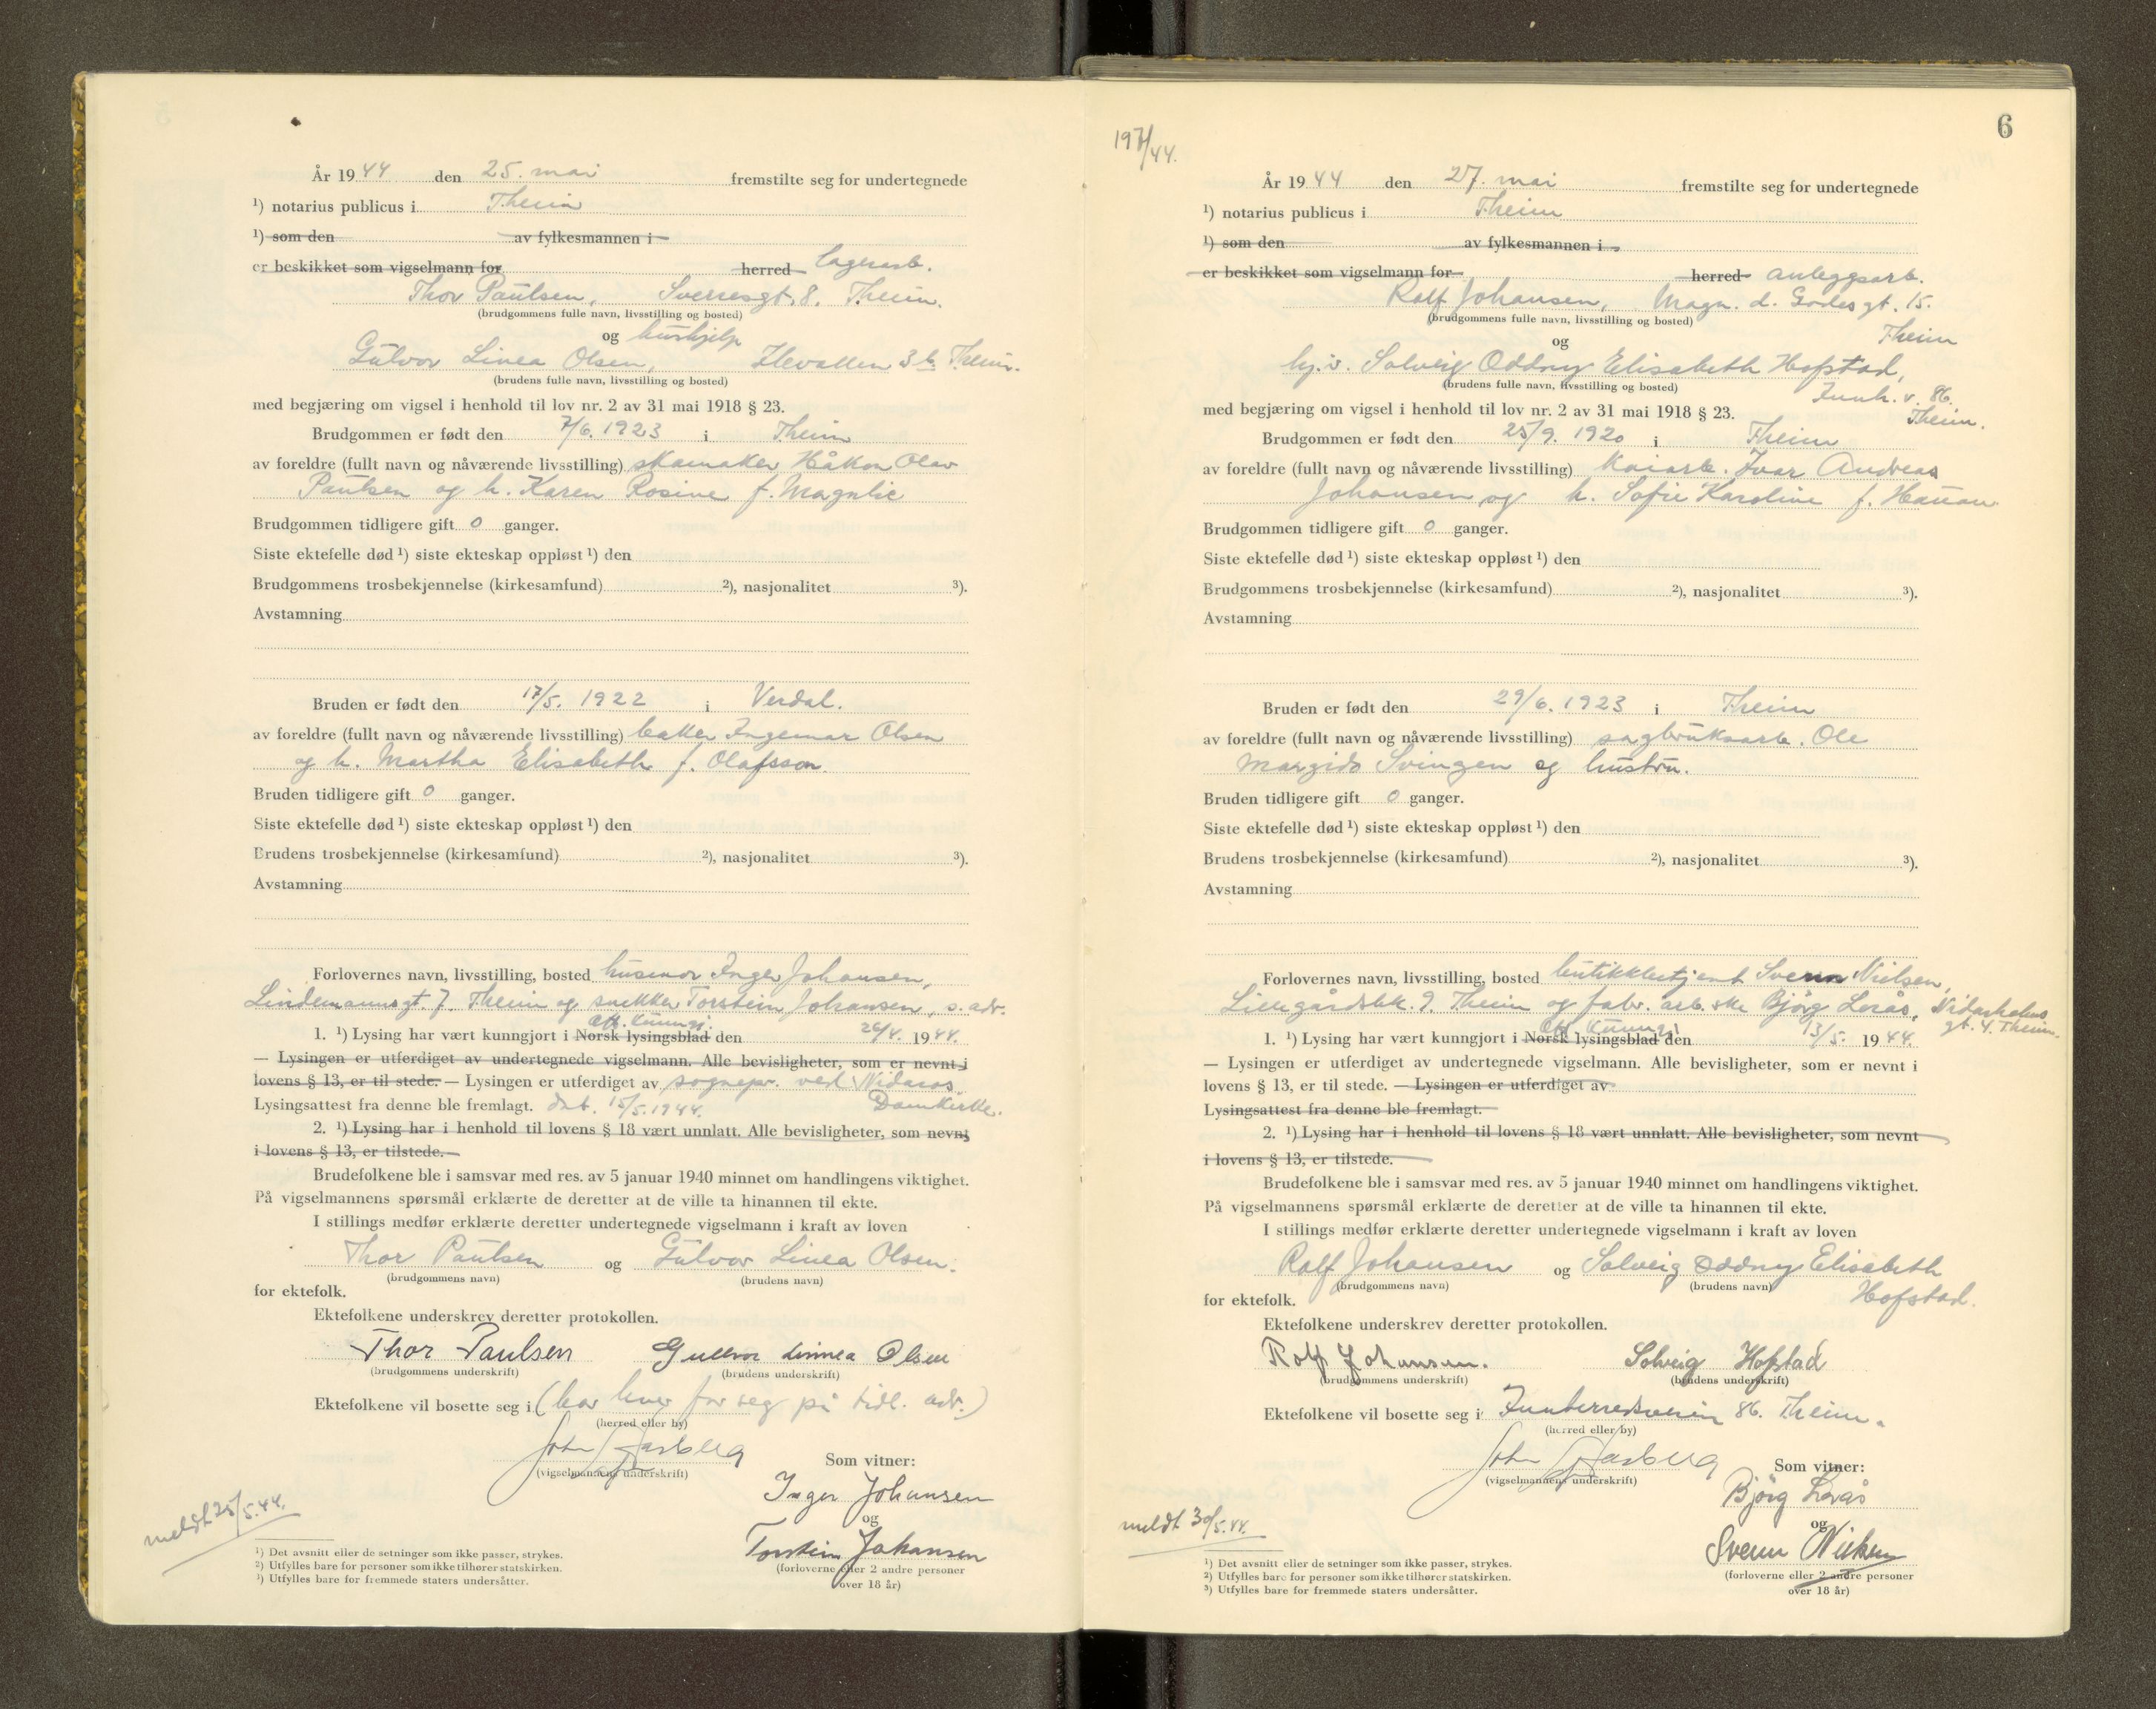 År 1944 den 25. mai fremstilte seg for undertegnede
¹) notarius publicus i Theim
¹) som den av fylkesmannen i
er beskikket som vigselmann for herred lagerarb.
Thor Paulsen, Sverresgt. 8. Theim.
(brudgommens fulle navn, livsstilling og bosted)
og hushjelp
Gulvor Linea Olsen, Ilevollen 3 b. Theim.
(brudens fulle navn, livsstilling og bosted)
med begjæring om vigsel i henhold til lov nr. 2 av 31 mai 1918 § 23.
Brudgommen er født den 7/6. 1923 i Theim
av foreldre (fullt navn og nåværende livsstilling) skomaker Håkon Olav
Paulsen og h. Karen Rosine f. Magnlie
Brudgommen tidligere gift 0 ganger.
Siste ektefelle død ¹) siste ekteskap oppløst ¹) den
Brudgommens trosbekjennelse (kirkesamfund) ²), nasjonalitet ³).
Avstamning
Bruden er født den 17/5. 1922 i Verdal.
av foreldre (fullt navn og nåværende livsstilling) Ingemar Olsen
og h. Martha Elisabeth f. Olafsson.
Bruden tidligere gift 0 ganger.
Siste ektefelle død ¹) siste ekteskap oppløst ¹) den
Brudens trosbekjennelse (kirkesamfund) ²), nasjonalitet ³).
Avstamning
Forlovernes navn, livsstilling, bosted husmor Inger Johansen,
Lindemannsgt. 7. Theim og snekker Torstein Johansen, s. adr.
Off. Kunngj.
1. ¹) Lysing har vært kunngjort i Norsk lysingsblad den 26/4. 1944.
— Lysingen er utferdiget av undertegnede vigselmann. Alle bevisligheter, som er nevnt i
lovens § 13, er til stede. — Lysingen er utferdiget av sognepr. ved Nidaros
Lysingsattest fra denne ble fremlagt. dat. 15/5.1944. Domkirke.
2. ¹) Lysing har i henhold til lovens § 18 vært unnlatt. Alle bevisligheter, som nevnt
i lovens § 13, er tilstede.
Brudefolkene ble i samsvar med res. av 5 januar 1940 minnet om handlingens viktighet.
På vigselmannens spørsmål erklærte de deretter at de ville ta hinannen til ekte.
I stillings medfør erklærte deretter undertegnede vigselmann i kraft av loven
Thor Paulsen og Gulvor Linea Olsen.
(brudgommens navn) (brudens navn)
for ektefolk.
Ektefolkene underskrev deretter protokollen.
Thor Paulsen Gullvor Linnea Olsen
(brudgommens underskrift) (brudens underskrift)
Ektefolkene vil bosette seg i (bor hver for seg på tidl. adr.)
(herred eller by)
John Aasberg
(vigselmannens underskrift) Som vitner:
Inger Johansen
og
Torstein Johansen
(forloverne eller 2 andre personer
over 18 år)
meldt 25/5.44.
¹) Det avsnitt eller de setninger som ikke passer, strykes.
²) Utfylles bare for personer som ikke tilhører statskirken.
³) Utfylles bare for fremmede staters undersåtter.
6
197/44.
År 1944 den 27. mai fremstilte seg for undertegnede
¹) notarius publicus i Theim
¹) som den av fylkesmannen i
er beskikket som vigselmann for herred anleggsarb.
Rolf Johansen, Magn. d. Godes gt. 15.
(brudgommens fulle navn, livsstilling og bosted) Theim
og
hj.v. Solveig Oddny Elisabeth Hofstad,
(brudens fulle navn, livsstilling og bosted) Innh. v. 86.
med begjæring om vigsel i henhold til lov nr. 2 av 31 mai 1918 § 23. Theim.
Brudgommen er født den 25/9. 1920 i Theim
av foreldre (fullt navn og nåværende livsstilling) kaiarb. Ivar Andreas
Johansen og h. Sofie Karoline f. Hauan
Brudgommen tidligere gift 0 ganger.
Siste ektefelle død ¹) siste ekteskap oppløst ¹) den
Brudgommens trosbekjennelse (kirkesamfund) ²), nasjonalitet ³).
Avstamning
Bruden er født den 29/6. 1923 i Theim
av foreldre (fullt navn og nåværende livsstilling) sagbruksarb. Ole
Margido Svingen og hustru.
Bruden tidligere gift 0 ganger.
Siste ektefelle død ¹) siste ekteskap oppløst ¹) den
Brudens trosbekjennelse (kirkesamfund) ²), nasjonalitet ³).
Avstamning
Forlovernes navn, livsstilling, bosted butikkbetjent Svenn Nielsen,
Lillegårdsbk. 9. Theim og fabr. arb.ske Bjørg Lerås, Nidarholms
gt. 4. Theim.
Off. Kunngj.
1. ¹) Lysing har vært kunngjort i Norsk lysingsblad den 13/5. 1944.
— Lysingen er utferdiget av undertegnede vigselmann. Alle bevisligheter, som er nevnt i
lovens § 13, er til stede. — Lysingen er utferdiget av
Lysingsattest fra denne ble fremlagt.
2. ¹) Lysing har i henhold til lovens § 18 vært unnlatt. Alle bevisligheter, som nevnt
i lovens § 13, er tilstede.
Brudefolkene ble i samsvar med res. av 5 januar 1940 minnet om handlingens viktighet.
På vigselmannens spørsmål erklærte de deretter at de ville ta hinannen til ekte.
I stillings medfør erklærte deretter undertegnede vigselmann i kraft av loven
Rolf Johansen og Solveig Oddny Elisabeth
(brudgommens navn) (brudens navn) Hofstad.
for ektefolk.
Ektefolkene underskrev deretter protokollen.
Rolf Johansen. Solveig Hofstad
(brudgommens underskrift) (brudens underskrift)
Ektefolkene vil bosette seg i Innherredsveien 86. Theim.
(herred eller by)
John Aasberg
(vigselmannens underskrift) Som vitner:
Bjørg Lerås
og
Svenn Nielsen
(forloverne eller 2 andre personer
over 18 år)
meldt 30/5.44.
¹) Det avsnitt eller de setninger som ikke passer, strykes.
²) Utfylles bare for personer som ikke tilhører statskirken.
³) Utfylles bare for fremmede staters undersåtter.